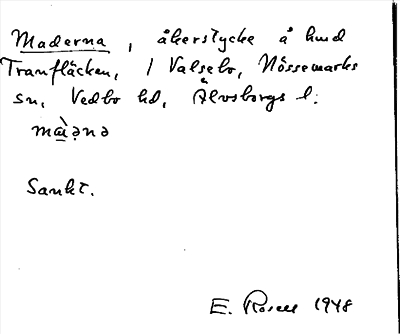 Maderna, åkerstycke å hmd
Tranfläcken, 1 Valsebo, Nössemarks
sn, Vedbo hd, Älvsborgs l:
Sankt.
E. Rosell 1948